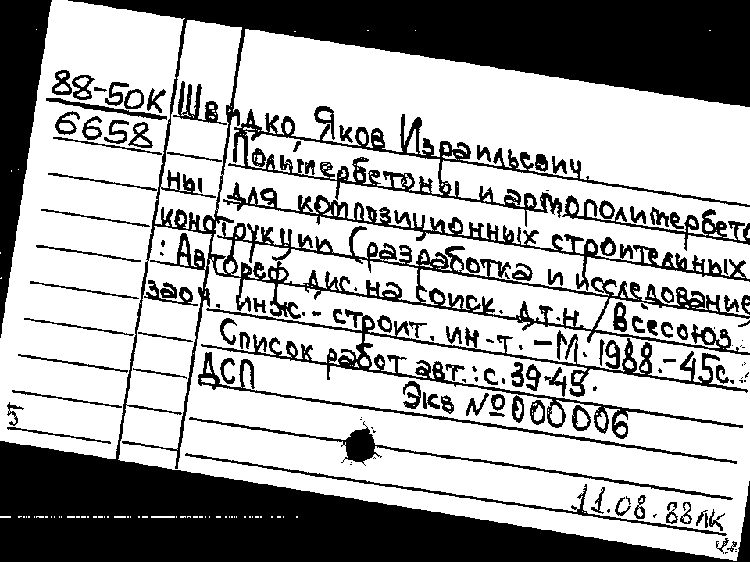 88-50К
6658
Швидко Яков Израильевич.
Полимербетоны и армополимербето
ны для композиционных строительных
конструкции (разработка и исследование)
: Автореф. дис. на соиск. д.т.н. / Всесоюз.
заоч. инж.- строит. ин-т. - М. 1988. - 45с.
Список работ авт.: с. 39-45.
ДСП
Экв № 000006
5
11.08.88 лк